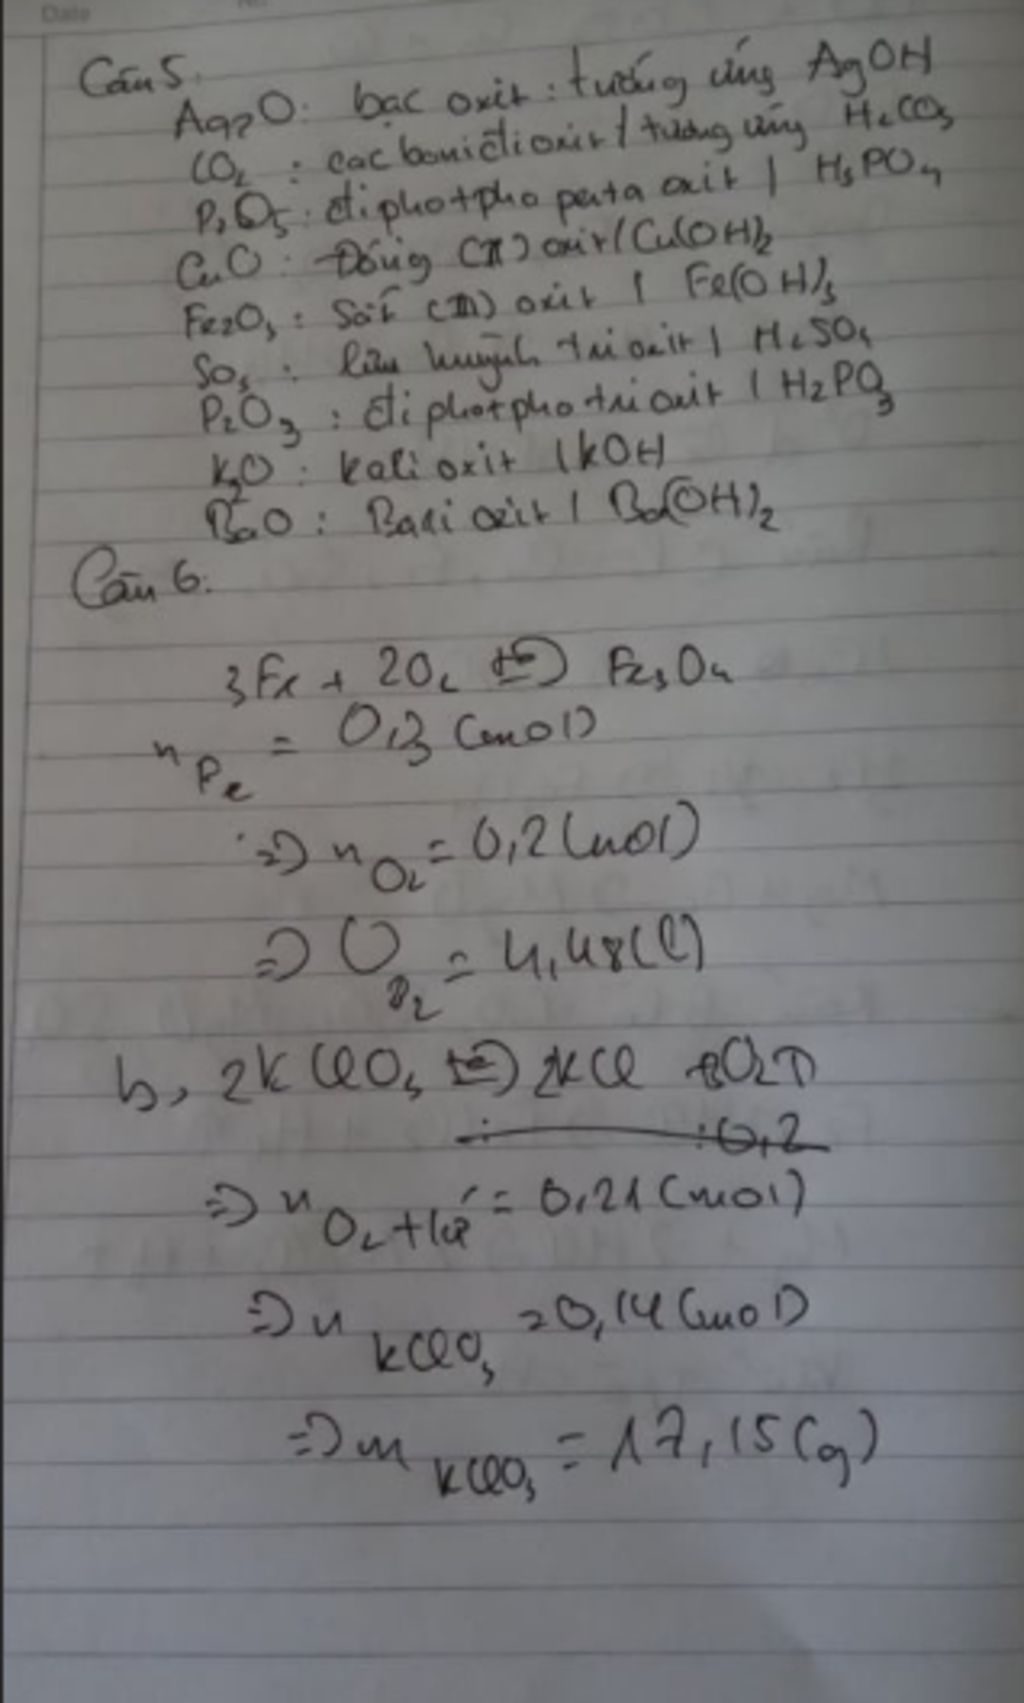 Date
Câu 5.
Ag2O: bạc oxit: tướng ứng AgOH
CO2: cacbonđioxit / tương ứng H2CO3
P2O5: điphotpho penta oxit / H3PO4
CuO: Đồng (II) oxit / Cu(OH)2
Fe2O3: Sắt (III) oxit / Fe(OH)3
SO3: lưu huỳnh tri oxit / H2SO4
P2O3: điphotpho tri oxit / H2PO3
K2O: kali oxit / KOH
BaO: Bari oxit / Ba(OH)2
Câu 6:
3Fe + 2O2 => Fe3O4
nFe = 0,3 (mol)
=> nO2 = 0,2 (mol)
=> O2 = 4,48 (l)
b, 2KClO3 => 2KCl O2↑
0,2
=> nO2 = 0,21 (mol)
=> nKClO3 = 0,14 (mol)
=> mKClO3 = 17,15 (g)